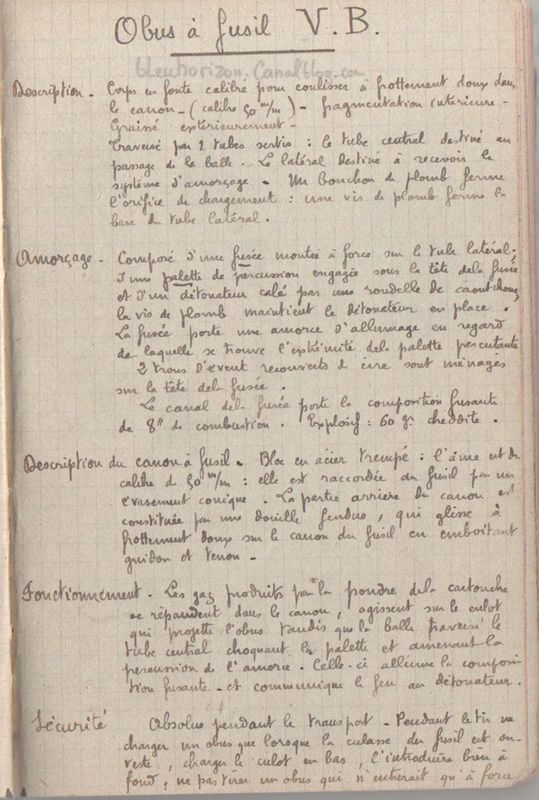 Obus à fusil V.B.
bleuhorizon.canalblog.com
Description - Corps en fonte calibré pour coulisser à frottement doux dans
le canon - (calibre 50 m/m) - fragmentation intérieure -
Graissé extérieurement -
Traversé par 2 tubes sertis : le tube central destiné au
passage de la balle. Le latéral destiné à recevoir le
système d'amorçage - Un bouchon de plomb ferme
l'orifice de chargement : une vis de plomb ferme la
base du tube latéral.
Amorçage - Composé d'une fusée montée à force sur le tube latéral.
d'une palette de percussion engagée sous la tête de la fusée
et d'un détonateur calé par une rondelle de caoutchouc,
la vis de plomb maintient le détonateur en place.
La fusée porte une amorce d'allumage en regard
de laquelle se trouve l'extrémité de la palette percutante
2 trous d'évent recouverts de cire sont ménagés
sur la tête de la fusée.
Le canal de la fusée porte la composition fusante
de 8" de combustion. Explosif : 60 gr cheddite.
Description du canon à fusil - Bloc en acier trempé : l'âme est du
calibre de 50 m/m : elle est raccordée au fusil par un
évasement conique. La partie arrière du canon est
constituée par une douille fendue, qui glisse à
frottement doux sur le canon du fusil en emboitant
guidon et tenon -
Fonctionnement - Les gaz produits par la poudre de la cartouche
se répandent dans le canon, agissent sur le culot
qui projette l'obus tandis que la balle traverse le
tube central choquant la palette et amenant la
percussion de l'amorce. Celle-ci allume la composi
tion fusante - et communique le feu au détonateur.
Sécurité Absolue pendant le transport - Pendant le tir ne
charger un obus que lorsque la culasse du fusil est ou-
verte, charger le culot en bas, l'introduire bien à
fond, ne pas tirer un obus qui n'entrerait qu'à force